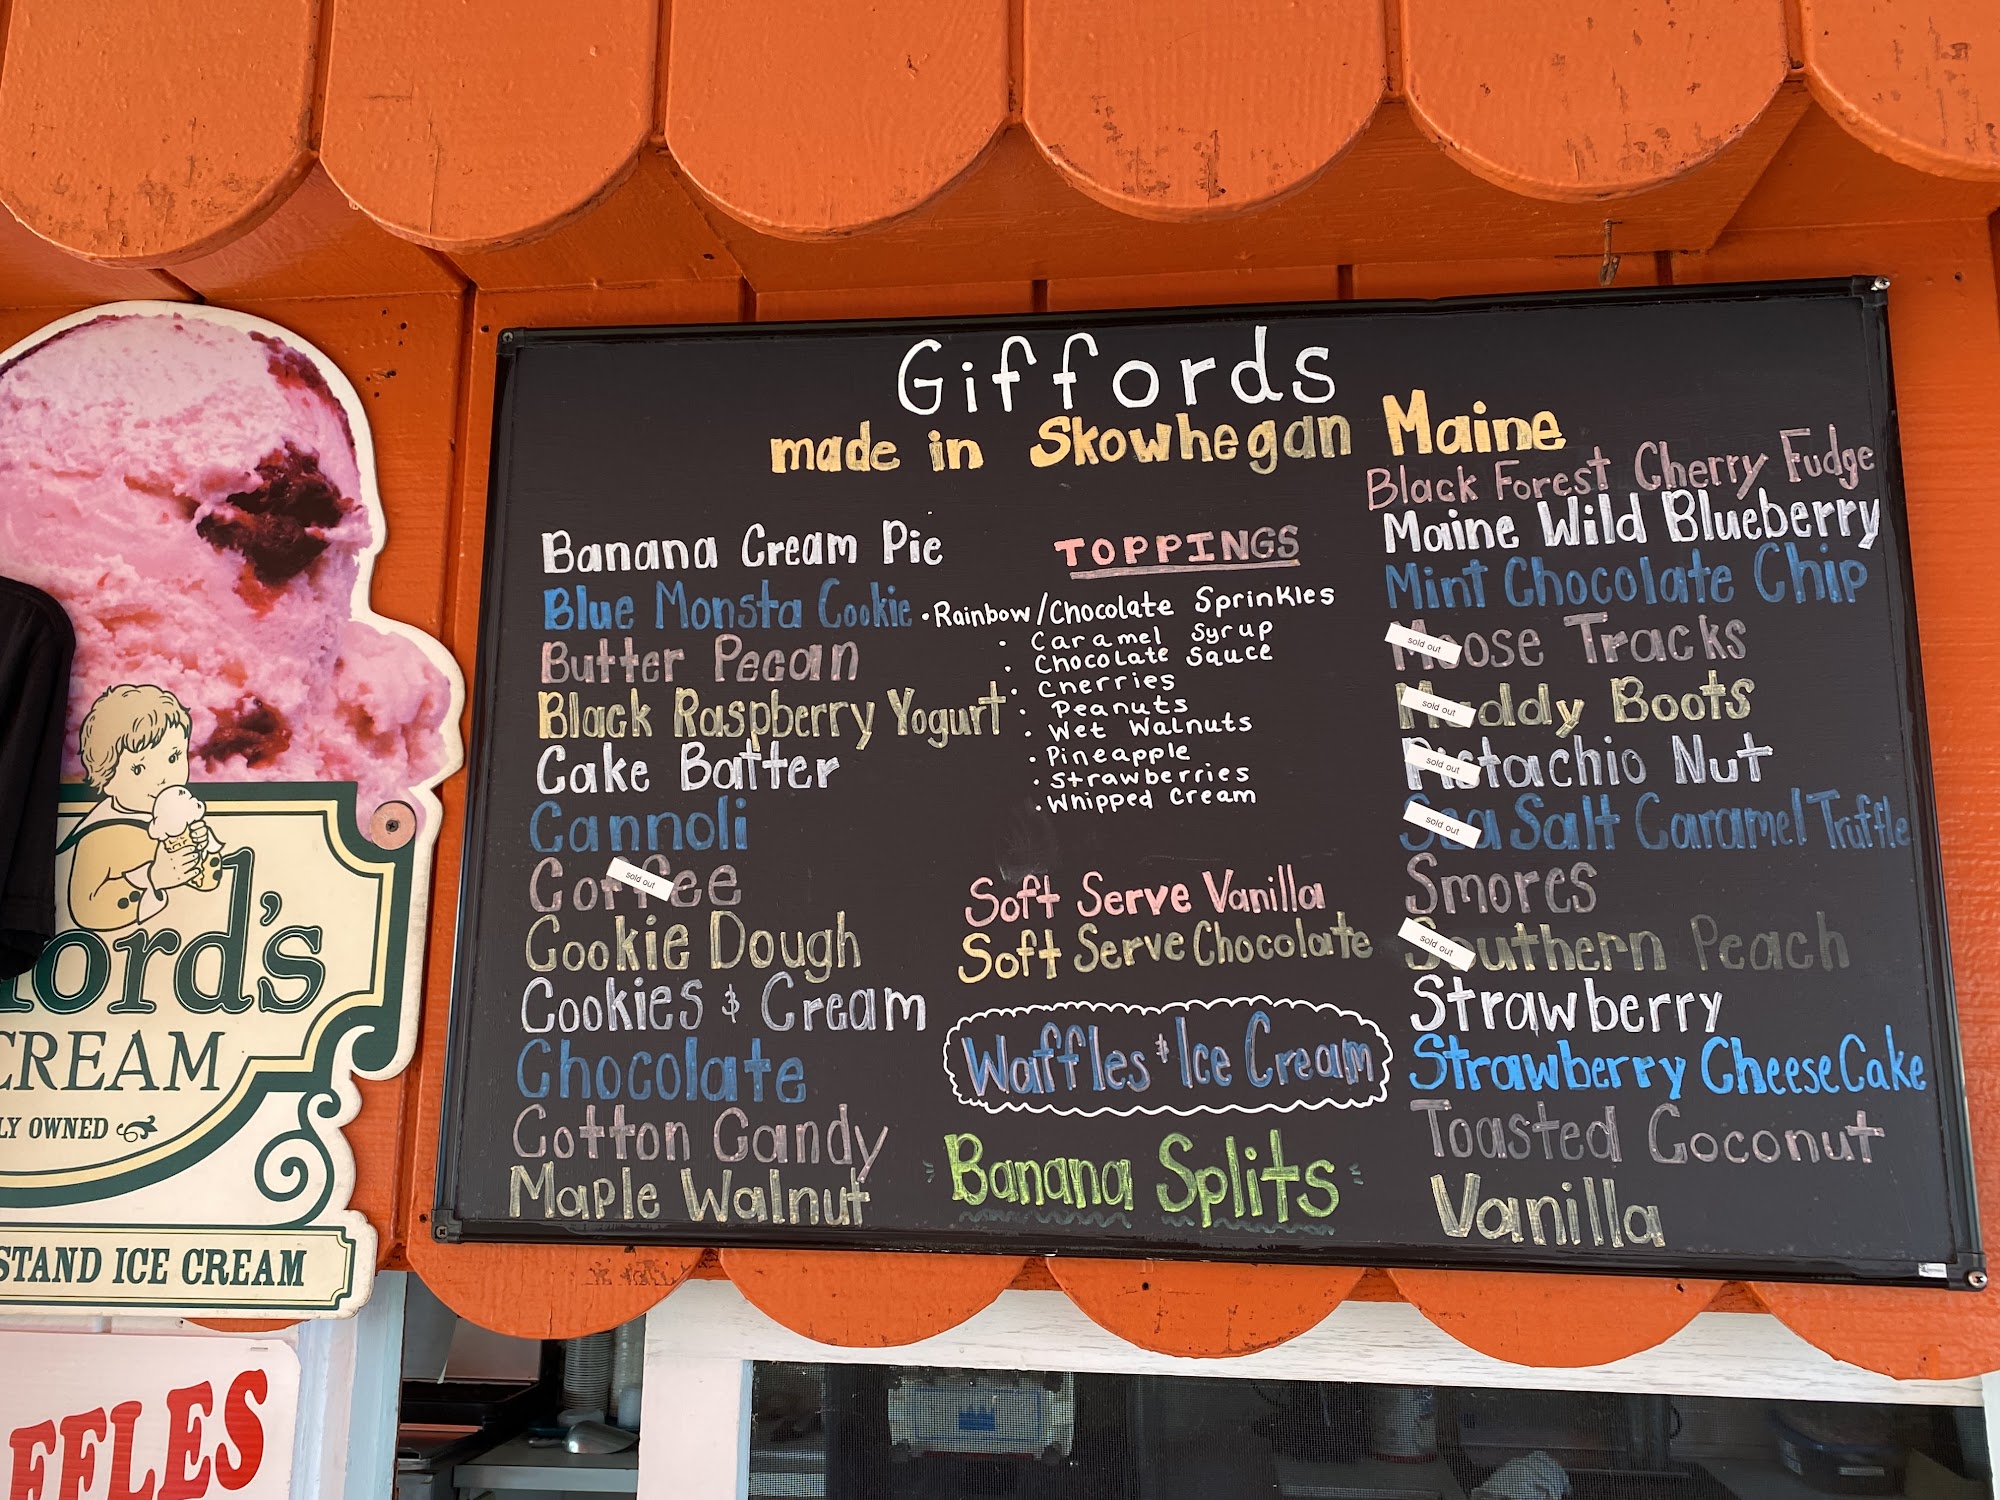 Giffords
made in Skowhegan Maine
Banana Cream Pie
Blue Monsta Cookie
Butter Pecan
Black Raspberry Yogurt
Cake Batter
Cannoli
Coffee
sold out
Cookie Dough
Cookies & Cream
Chocolate
Cotton Candy
Maple Walnut
TOPPINGS
• Rainbow/Chocolate Sprinkles
• Caramel Syrup
• Chocolate Sauce
• Cherries
• Peanuts
• Wet Walnuts
• Pineapple
• Strawberries
• Whipped Cream
Soft Serve Vanilla
Soft Serve Chocolate
Waffles & Ice Cream
Banana Splits
Black Forest Cherry Fudge
Maine Wild Blueberry
Mint Chocolate Chip
Moose Tracks
sold out
Muddy Boots
sold out
Pistachio Nut
sold out
Sea Salt Caramel Truffle
sold out
Smores
Southern Peach
sold out
Strawberry
Strawberry CheeseCake
Toasted Coconut
Vanilla
ford's
CREAM
LY OWNED
STAND ICE CREAM
FFLES